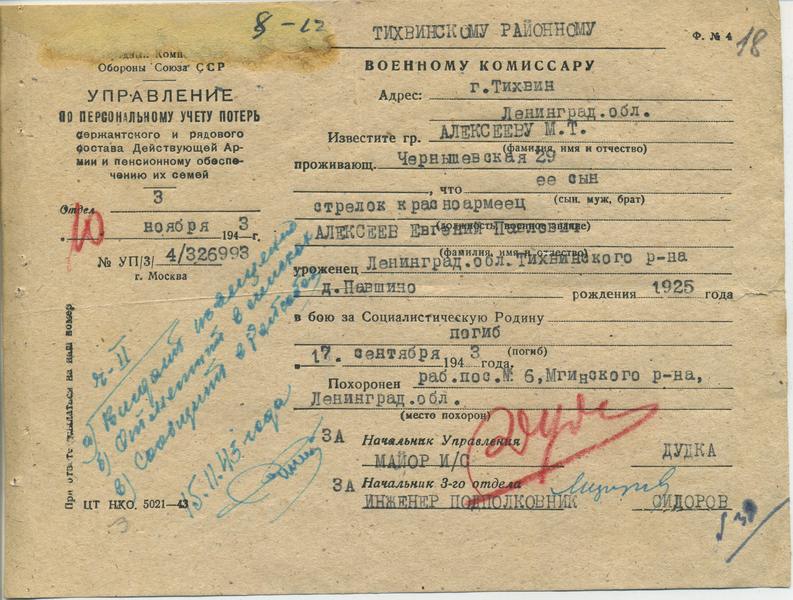 8-12
ТИХВИНСКОМУ РАЙОННОМУ
Ф. № 4
18
Обороны Союза ССР
УПРАВЛЕНИЕ
ПО ПЕРСОНАЛЬНОМУ УЧЕТУ ПОТЕРЬ
сержантского и рядового
состава Действующей Ар-
мии и пенсионному обеспе-
чению их семей
3
Отдел
10
ноября 1943 г.
№ УП/3/ 4/326993
г. Москва
ВОЕННОМУ КОМИССАРУ
Адрес: г.Тихвин
Ленинград.обл.
Известите гр. АЛЕКСЕЕВУ М.Т.
(фамилия, имя и отчество)
проживающ. Чернышевская 29
, что ее сын
(сын. муж, брат)
стрелок красноармеец
(должность, военное звание)
АЛЕКСЕЕВ Евгений
(фамилия, имя и отчество)
уроженец Ленинград.обл.Тихвинского р-на
д.Павшино рождения 1925 года
в бою за Социалистическую Родину
погиб
17. сентября 1943 года. (погиб)
Похоронен раб.пос.№ 6,Мгинского р-на,
Ленинград.обл.
(место похорон)
ЗА Начальник Управления
МАЙОР И/С ДУДКА
ЗА Начальник 3-го отдела
ИНЖЕНЕР ПОДПОЛКОВНИК СИДОРОВ
ч-II
а) Выдать извещение
б) Отметить в списках
в) Сообщить в
15.11.43 года
При ответе ссылаться на наш номер
ЦТ НКО. 5021—43
3